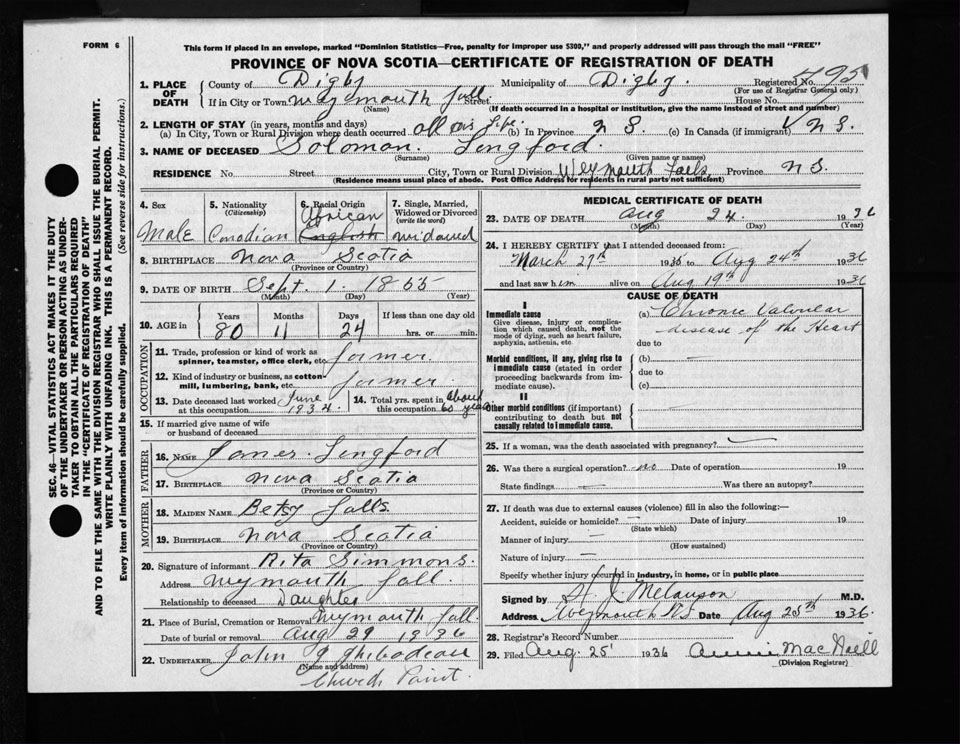 FORM 6
This form if placed in an envelope, marked "Dominion Statistics—Free, penalty for improper use $300," and properly addressed will pass through the mail "FREE"
PROVINCE OF NOVA SCOTIA—CERTIFICATE OF REGISTRATION OF DEATH
1. PLACE OF DEATH County of Digby Municipality of Digby. Registered No. 495
(For use of Registrar General only)
If in City or Town Weymouth fall Street House No.
(Name) (If death occurred in a hospital or institution, give the name instead of street and number)
2. LENGTH OF STAY (in years, months and days)
(a) In City, Town or Rural Division where death occurred all his life. (b) In Province N S. (c) In Canada (if immigrant) N S.
3. NAME OF DECEASED Soloman. Lingford.
(Surname) (Given name or names)
RESIDENCE No. Street City, Town or Rural Division Weymouth Falls, Province N S.
(Residence means usual place of abode. Post Office Address for residents in rural parts not sufficient)
4. Sex 5. Nationality (Citizenship) 6. Racial Origin 7. Single, Married, Widowed or Divorced (write the word)
African
Male Canadian English widowed
8. BIRTHPLACE Nova Scotia
(Province or Country)
9. DATE OF BIRTH Sept. 1. 1855
(Month) (Day) (Year)
10. AGE in Years Months Days If less than one day old
80 11 24 hrs. or min.
OCCUPATION
11. Trade, profession or kind of work as spinner, teamster, office clerk, etc. farmer.
12. Kind of industry or business, as cotton-mill, lumbering, bank, etc. farmer.
13. Date deceased last worked at this occupation June 1934 14. Total yrs. spent in this occupation About 60 years
15. If married give name of wife or husband of deceased
FATHER
16. NAME James Lingford
17. BIRTHPLACE Nova Scotia
(Province or Country)
MOTHER
18. MAIDEN NAME Betsy falls.
19. BIRTHPLACE Nova Scotia
(Province or Country)
20. Signature of informant Rita Simmons.
Address Weymouth fall.
Relationship to deceased Daughter
21. Place of Burial, Cremation or Removal Weymouth fall.
Date of burial or removal Aug 29 1936
22. UNDERTAKER John
(Name and address)
Church Point.
MEDICAL CERTIFICATE OF DEATH
23. DATE OF DEATH Aug 24. 1936
(Month) (Day) (Year)
24. I HEREBY CERTIFY that I attended deceased from:
March 27th 1936 to Aug 24th 1936
and last saw him alive on Aug 19th 1936
CAUSE OF DEATH
I
Immediate cause (a) Chronic Valvular
Give disease, injury or complication which caused death, not the mode of dying, such as heart failure, asphyxia, asthenia, etc. disease of the Heart
due to
Morbid conditions, if any, giving rise to immediate cause (stated in order proceeding backwards from immediate cause). (b) —
due to
(c)
II
Other morbid conditions (if important) contributing to death but not causally related to immediate cause.
25. If a woman, was the death associated with pregnancy? —
26. Was there a surgical operation? no Date of operation 19
State findings — Was there an autopsy?
27. If death was due to external causes (violence) fill in also the following:—
Accident, suicide or homicide? — Date of injury 19
(State which)
Manner of injury —
(How sustained)
Nature of injury —
Specify whether injury occurred in industry, in home, or in public place
Signed by H. J. Melanson M.D.
Address Weymouth N S Date Aug 25th 1936.
28. Registrar's Record Number
29. Filed Aug. 25 1936 Annie MacNeill
(Division Registrar)
SEC. 46—VITAL STATISTICS ACT MAKES IT THE DUTY
OF THE UNDERTAKER OR PERSON ACTING AS UNDER-
TAKER TO OBTAIN ALL THE PARTICULARS REQUIRED
IN THE "CERTIFICATE OF REGISTRATION OF DEATH"
AND TO FILE THE SAME WITH THE DIVISION REGISTRAR WHO SHALL ISSUE THE BURIAL PERMIT.
WRITE PLAINLY WITH UNFADING INK. THIS IS A PERMANENT RECORD.
Every item of information should be carefully supplied. (See reverse side for instructions.)